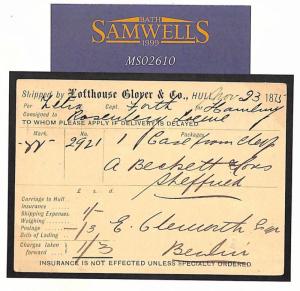 BATH
SAMWELLS
1999
MS02610
Shipped by Lofthouse Glover & Co., HULL, Nov 23 1875
Per Zebra Capt. Forth for Hamburg
Consigned to Rosenberg Loewe
TO WHOM PLEASE APPLY IF DELIVERY IS DELAYED
Mark. No. Packages.
2921 1 Case from
A Beckett & Sons
Sheffield
£ s. d.
Carriage to Hull
Insurance
Shipping Expenses 1/-
Weighing
Postage -/3 E.
Bills of Lading
Charges taken forward 1/3 Berlin
INSURANCE IS NOT EFFECTED UNLESS SPECIALLY ORDERED